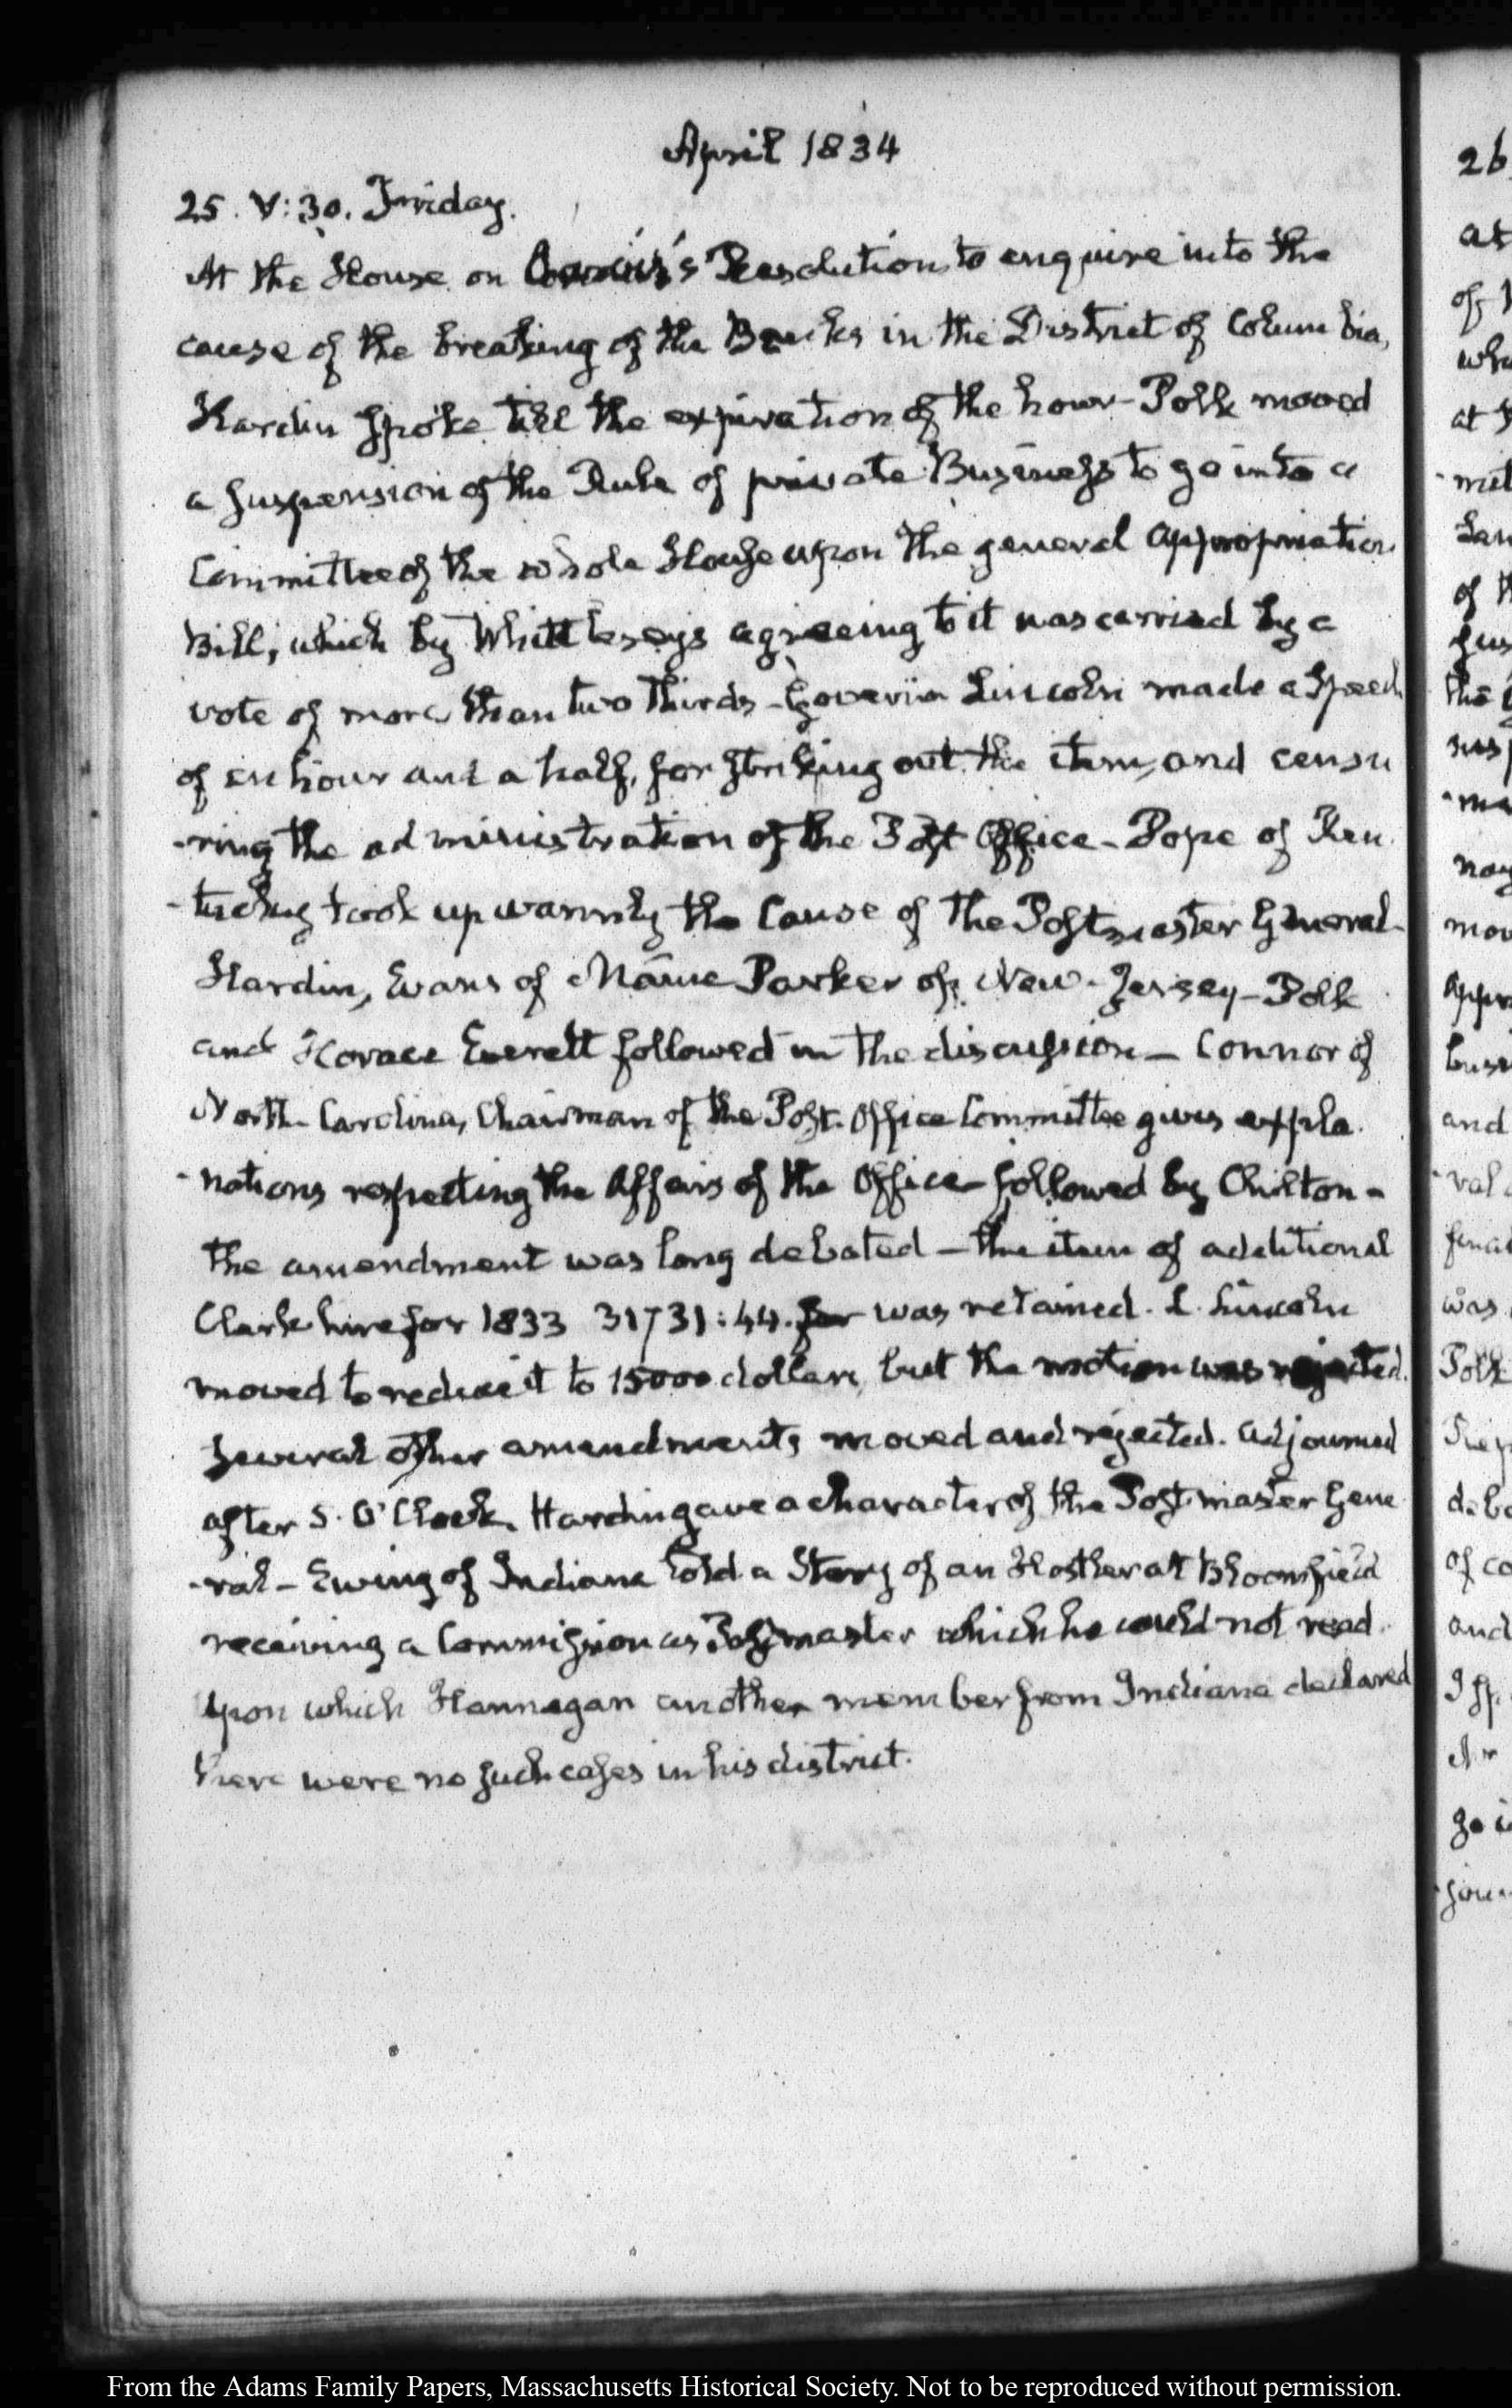 April 1834
25. V:30. Friday.
At the House on 's Resolution to enquire into the
cause of the breaking of the Banks in the District of Columbia,
Hardin spoke till the expiration of the hour – Polk moved
a suspension of the Rule of private Business to go into a
Committee of the whole House upon the general appropriation
Bill, which by Whittleseys agreeing to it was carried by a
vote of more than two thirds – Govern Lincoln made a Speech
of an hour and a half, for striking out the item, and censu
-ring the administration of the Post Office – Pope of Ken
-tucky took up warmly the Cause of the Postmaster General –
Hardin, Evans of Maine Parker of New-Jersey – Polk
and Horace Everett followed in the discussion – Connor of
North-Carolina, Chairman of the Post-Office Committee gives expla
-nations respecting the Affairs of the Office followed by Chilton –
the amendment was long debated – the item of additional
Clerk hire for 1833 31731:44. for was retained. L. Lincoln
moved to reduce it to 15000 dollars, but the motion was rejected.
Several other amendments moved and rejected. Adjourned
after 5. O'Clock. Hardin gave a character of the Postmaster Gene
-ral – Ewing of Indiana told a Story of an Hostler at Bloomfield
receiving a Commission as Postmaster which he could not read.
Upon which Hannegan another member from Indiana declared
there were no such cases in his district.
26
at
of
at
of
and
was
Polk
of co
and
From the Adams Family Papers, Massachusetts Historical Society. Not to be reproduced without permission.